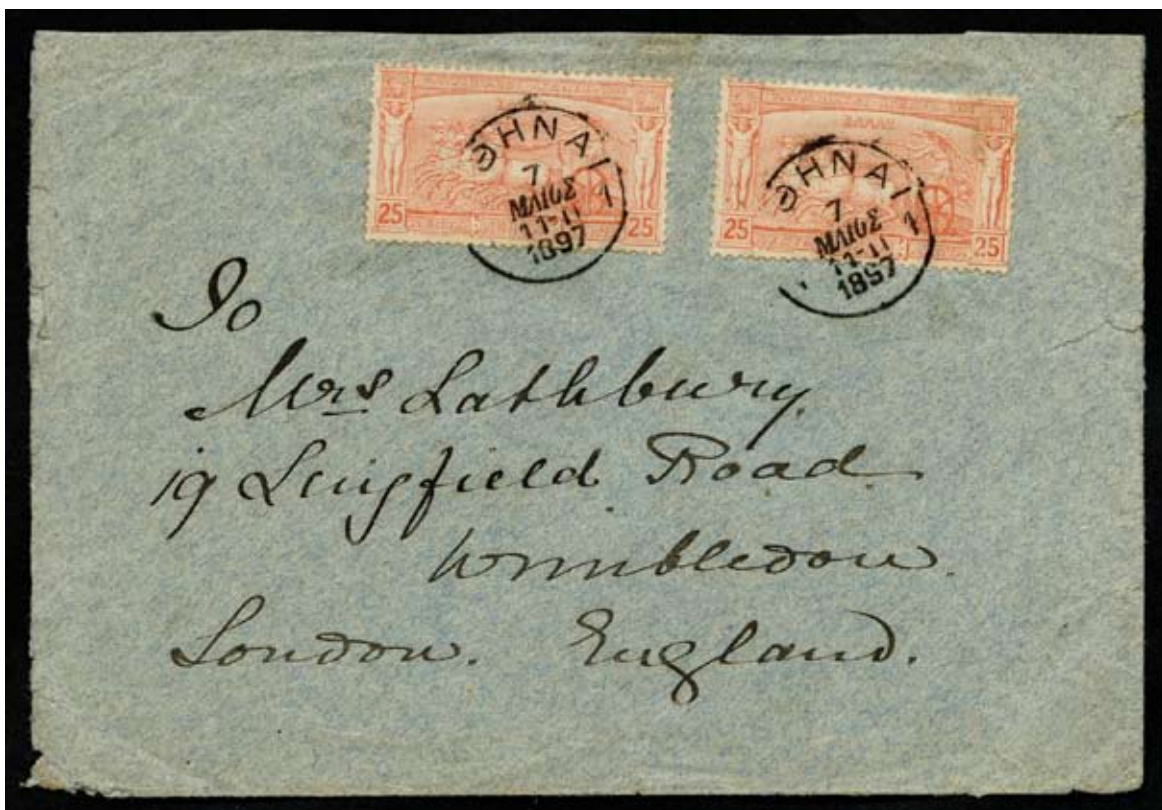 ΕΛΛΑΣ
25 25
ΑΘΗΝΑΙ 1
7
ΜΑΙΟΣ
11-11
1897
ΕΛΛΑΣ
25 25
ΑΘΗΝΑΙ 1
7
ΜΑΙΟΣ
11-11
1897
To
Mrs Lathbury
19 Lingfield Road
Wimbledon.
London. England.